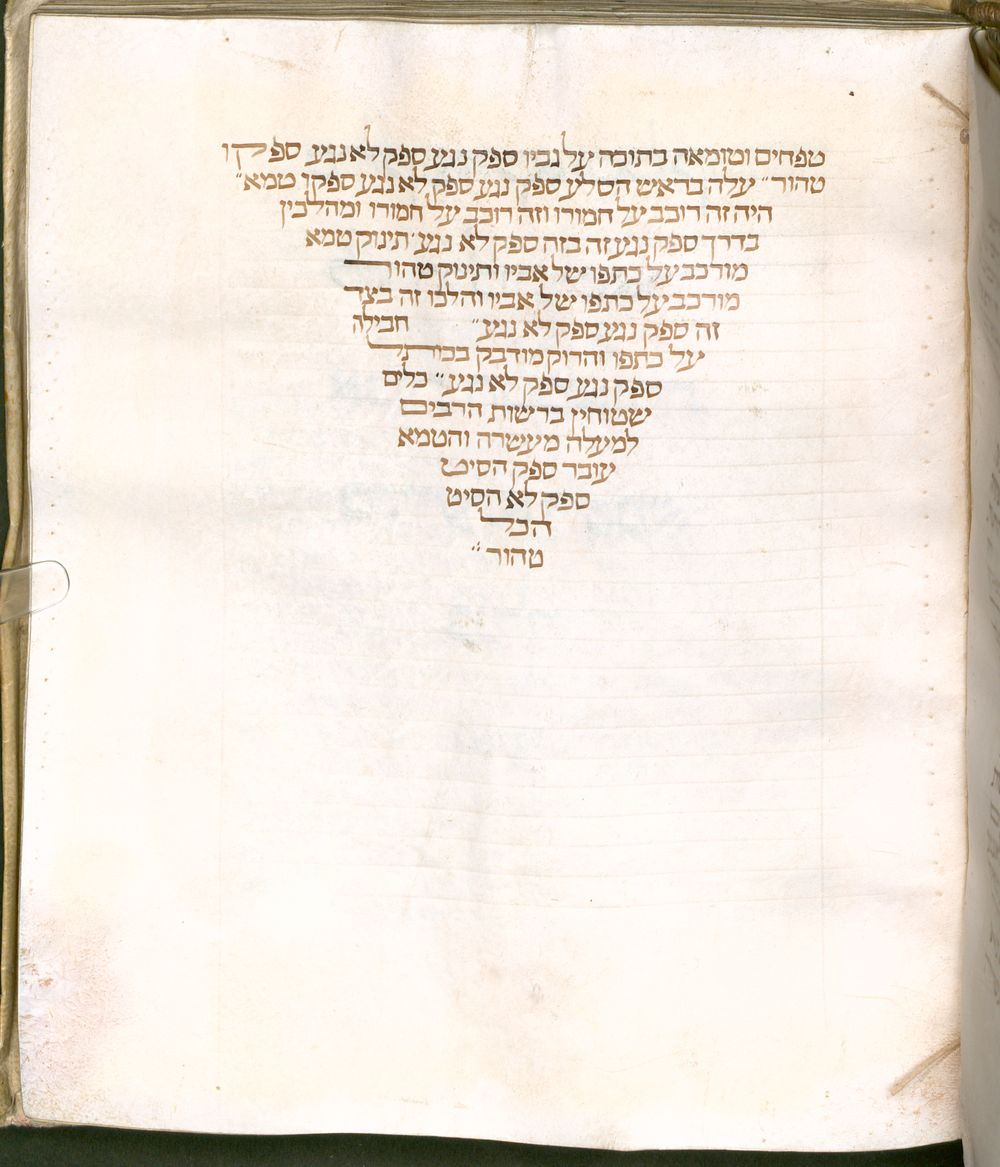 טפחים וטומאה בתוכה על גביו ספק נגע ספק לא נגע ספקו
טהור״ עלה בראיש הסלע ספק נגע ספק לא נגע ספקו טמא״
היה זה רוכב על חמורו וזה רוכב על חמורו ומהלכין
בדרך ספק נגע זה בזה ספק לא נגע׳ תינוק טמא
מורכב על כתפו של אביו ותינוק טהור
מורכב על כתפו של אביו והלכו זה בצד
זה ספק נגע ספק לא נגע״ חבילה
על כתפו והרוק מודבק בכותל
ספק נגע ספק לא נגע״ כלים
שטוחין ברשות הרבים
למעלה מעשרה והטמא
עובר ספק הסיט
ספק לא הסיט
הכל
טהור״